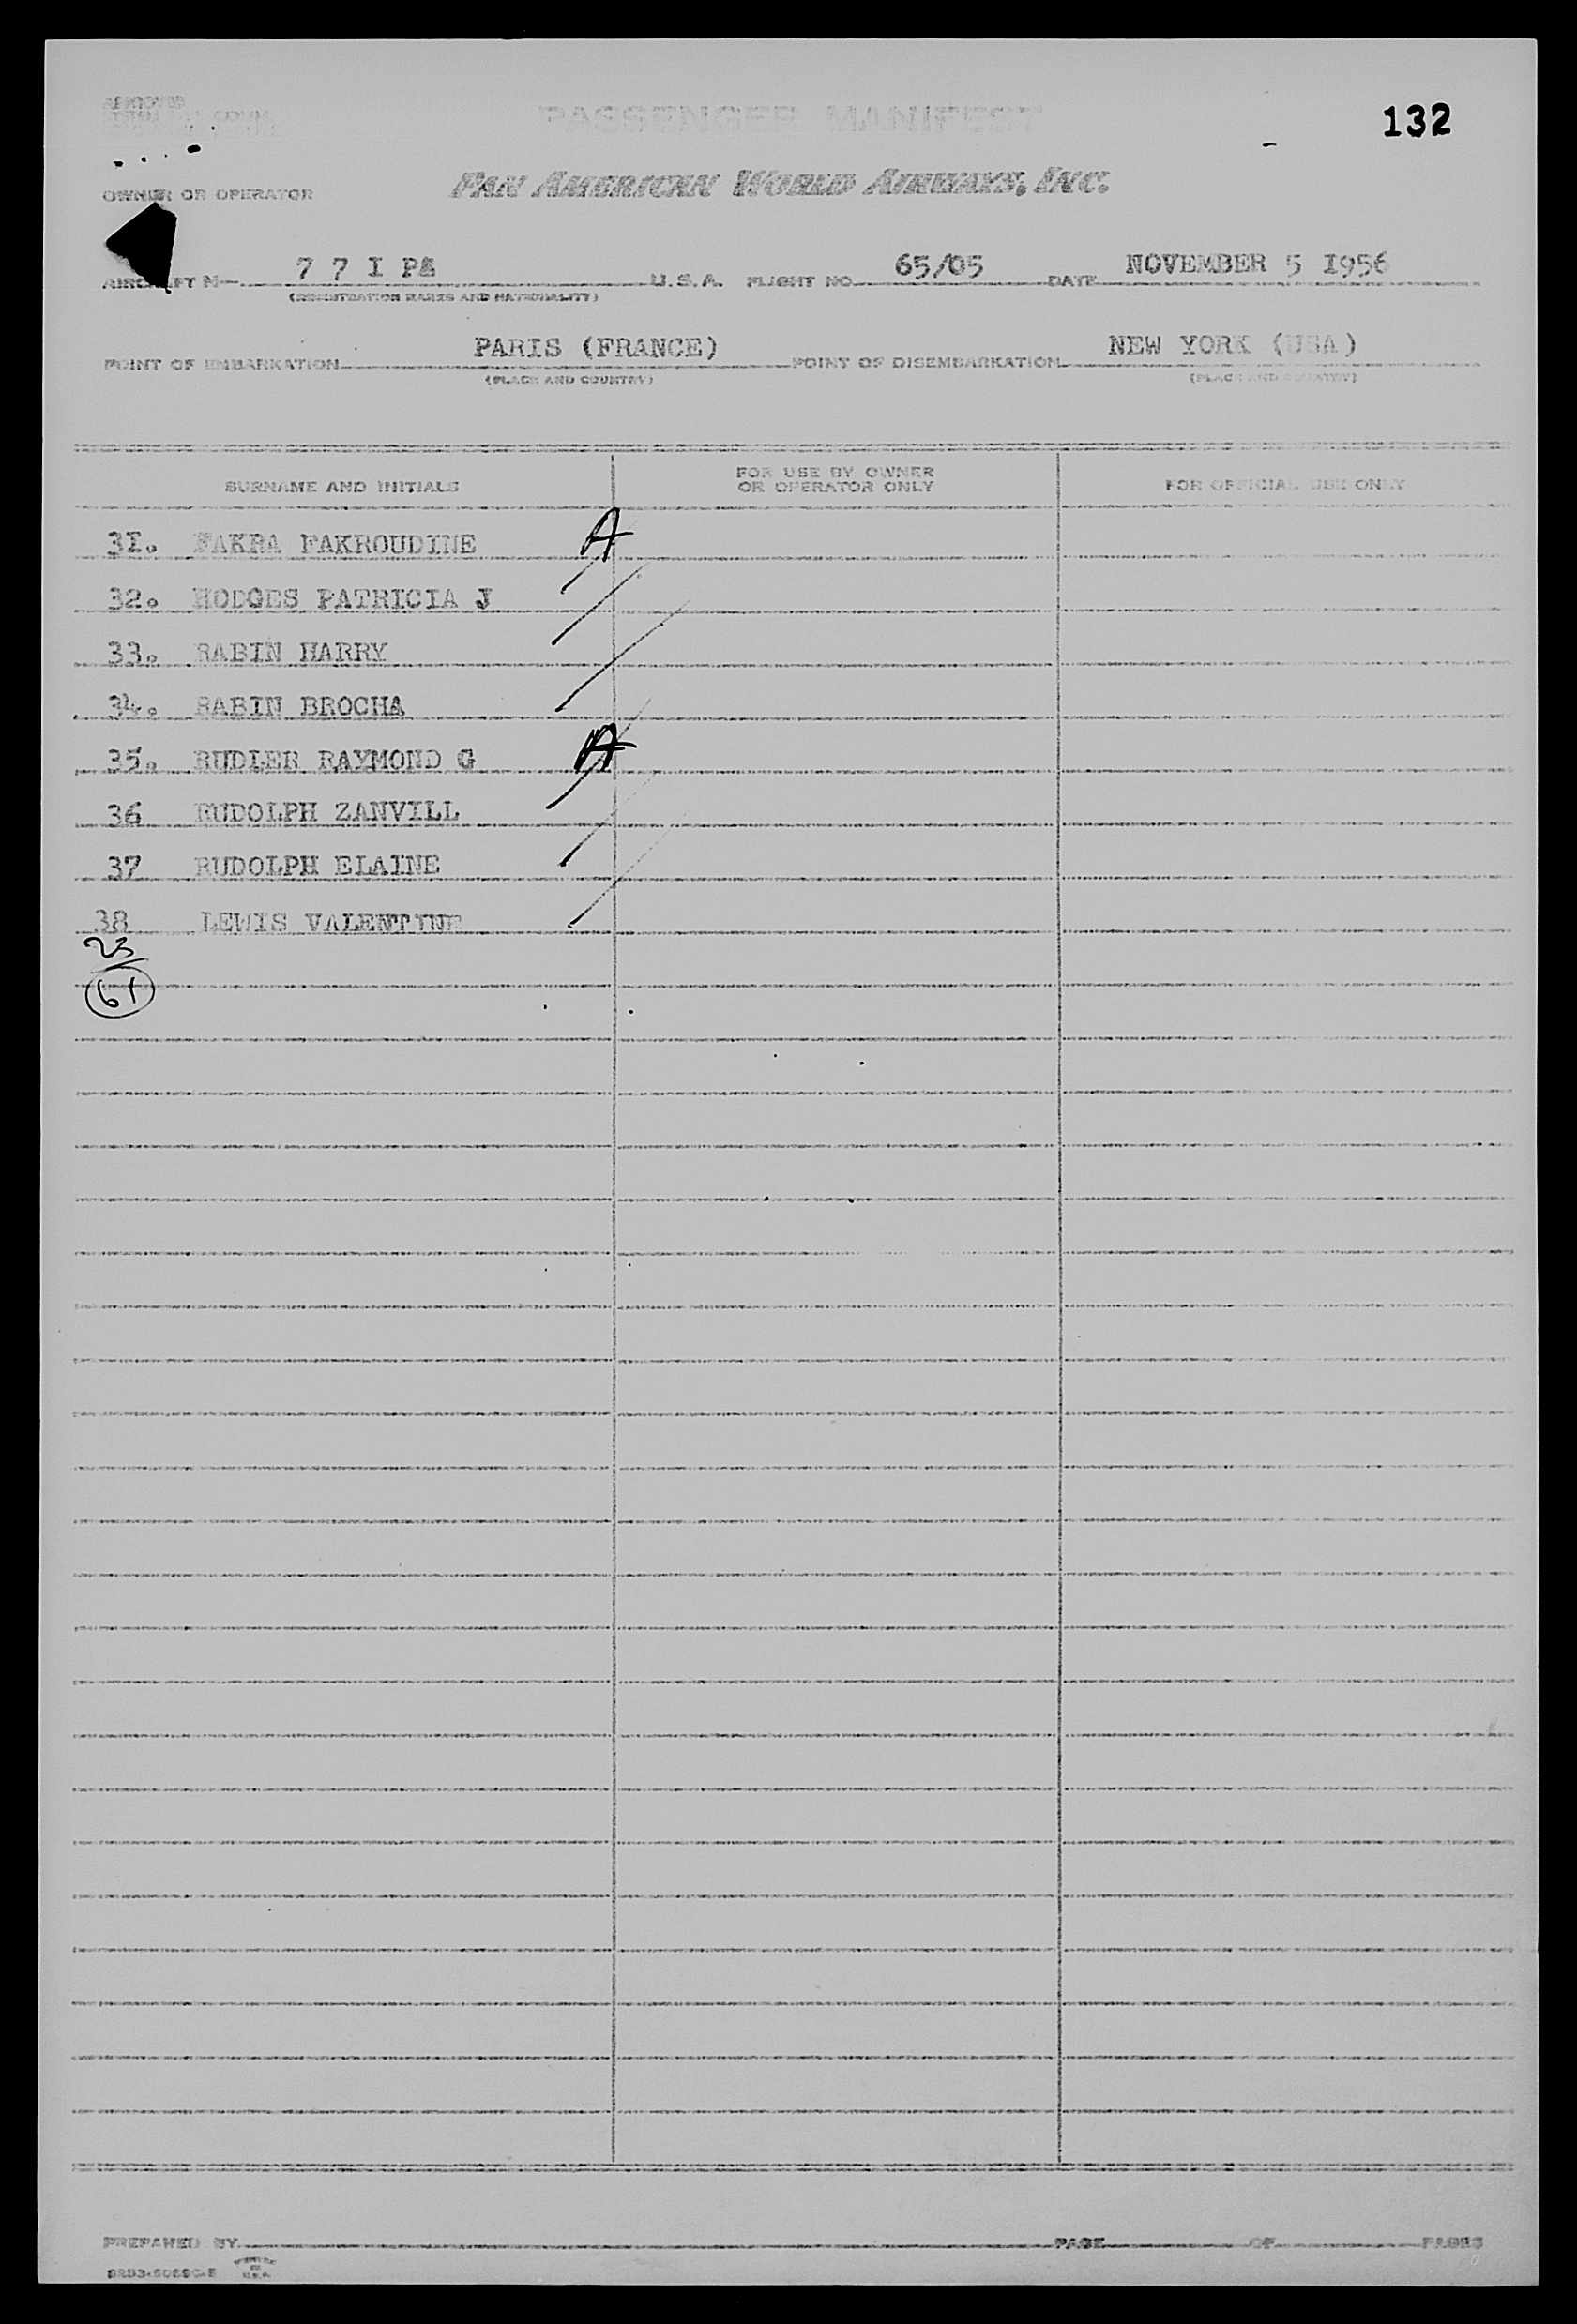 PASSENGER MANIFEST
132
OWNER OR OPERATOR PAN AMERICAN WORLD AIRWAYS, INC.
AIRCRAFT N 7 7 I PA U.S.A. FLIGHT NO 65/05 DATE NOVEMBER 5 I956
(REGISTRATION MARKS AND NATIONALITY)
POINT OF EMBARKATION PARIS (FRANCE) POINT OF DISEMBARKATION NEW YORK (USA)
(PLACE AND COUNTRY) (PLACE AND COUNTRY)
SURNAME AND INITIALS FOR USE BY OWNER OR OPERATOR ONLY FOR OFFICIAL USE ONLY
3I. FAKRA FAKROUDINE A
32. HODGES PATRICIA J
33. RABIN HARRY
34. RABIN BROCHA
35. RUDLER RAYMOND G A
36 RUDOLPH ZANVILL
37 RUDOLPH ELAINE
38 LEWIS VALENTINE
23
61
PREPARED BY PAGE OF PAGES